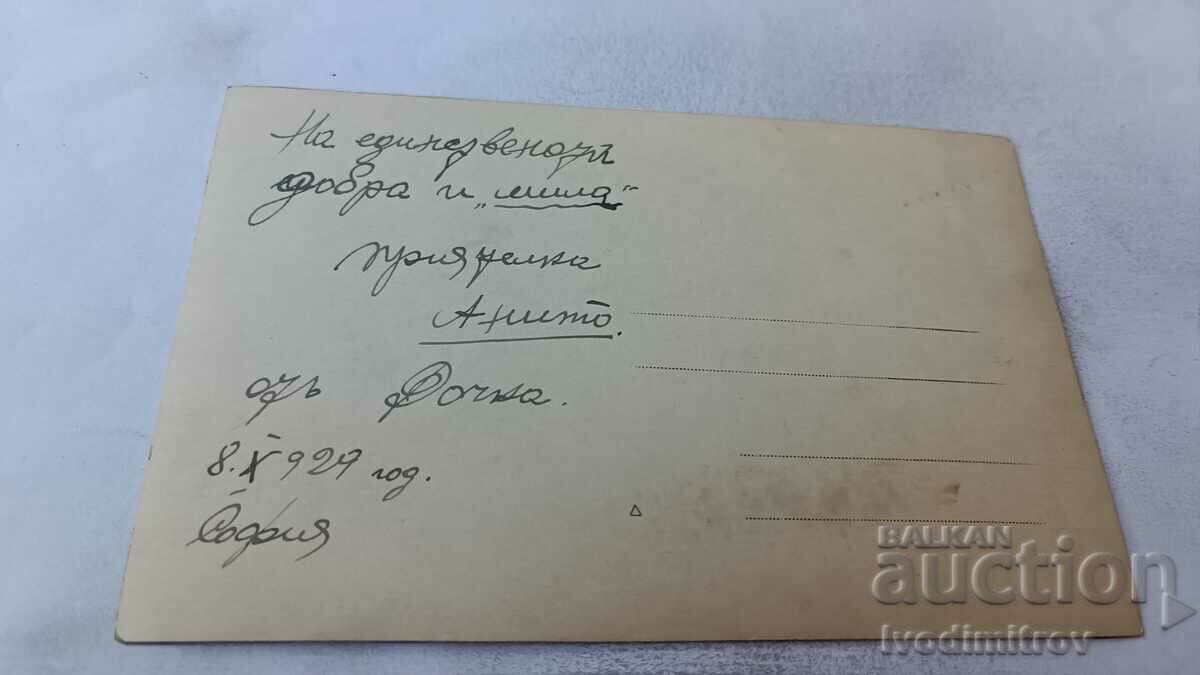 На единствената
добра и „мила“
приятелка
Анито.
отъ Дочка.
8. X 929 год.
София
BALKAN
auction
Ivodimitrov